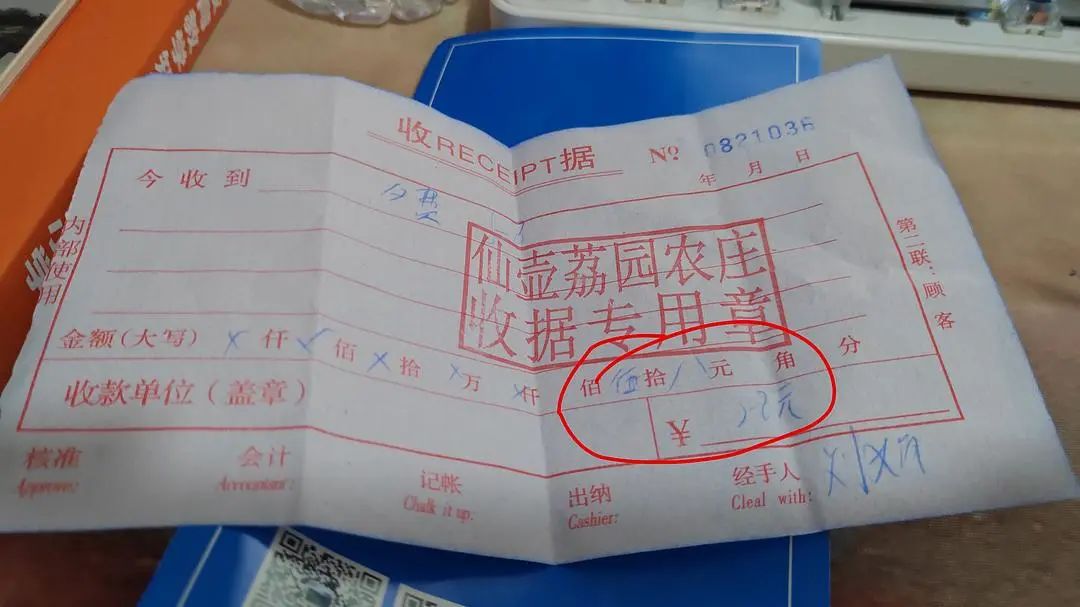 收RECEIPT据
№ 0821036
年 月 日
今收到
仙壶荔园农庄
收据专用章
内部使用
第二联：顾客
金额(大写) 仟 佰 拾 万 仟 佰 伍 拾 八 元 角 分
收款单位（盖章）
¥
核准 会计 记帐 出纳 经手人
Approve: Accountant: Chalk it up: Cashier: Cleal with: